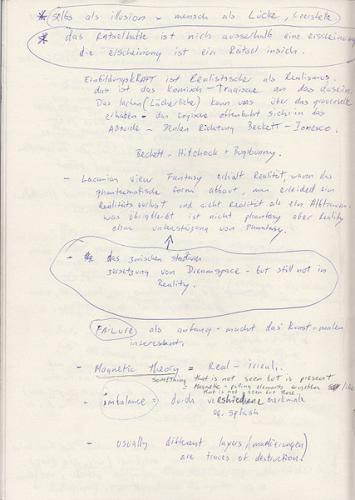 * selbst als illusion - mensch als Lücke, Leerstelle
* das Rätselhafte ist nich ausserhalb eine erscheinung
die erscheinung ist ein Rätsel in sich.
EinbildungsKRAFT ist Realistischer als Realismus.
das ist das Komisch-Tragische an das dasein.
Das lachen (Lächerliche) kann uns über das
erhalten - das Logische offenbahrt sich in das
Absurde - Denken Richtung Beckett - Ionesco.
Beckett - Hitchcock + Bugs bunny.
- Lacanian view Fantasy erhält Realität, wenn das
phantasmatische form man erleided ein
Realitäts verlust und sieht Realität als ein Albtraum.
was übrigbleibt ist nicht phantasy aber Reality
ohne unterstützung von Fantasy.
- * das zwischen stadium
von Dreamspace - but still not in
Reality.
FAILURE als anfang - macht das Kunst-malen
interessant.
- Magnetic theory = Real - irreal.
something that is not seen but is present
- Magnetic - pulling elements together
that is not seen but there.
- imbalance => durch verschiedene merkmale
eg. splash
- usually different layers
are traces of destruction.